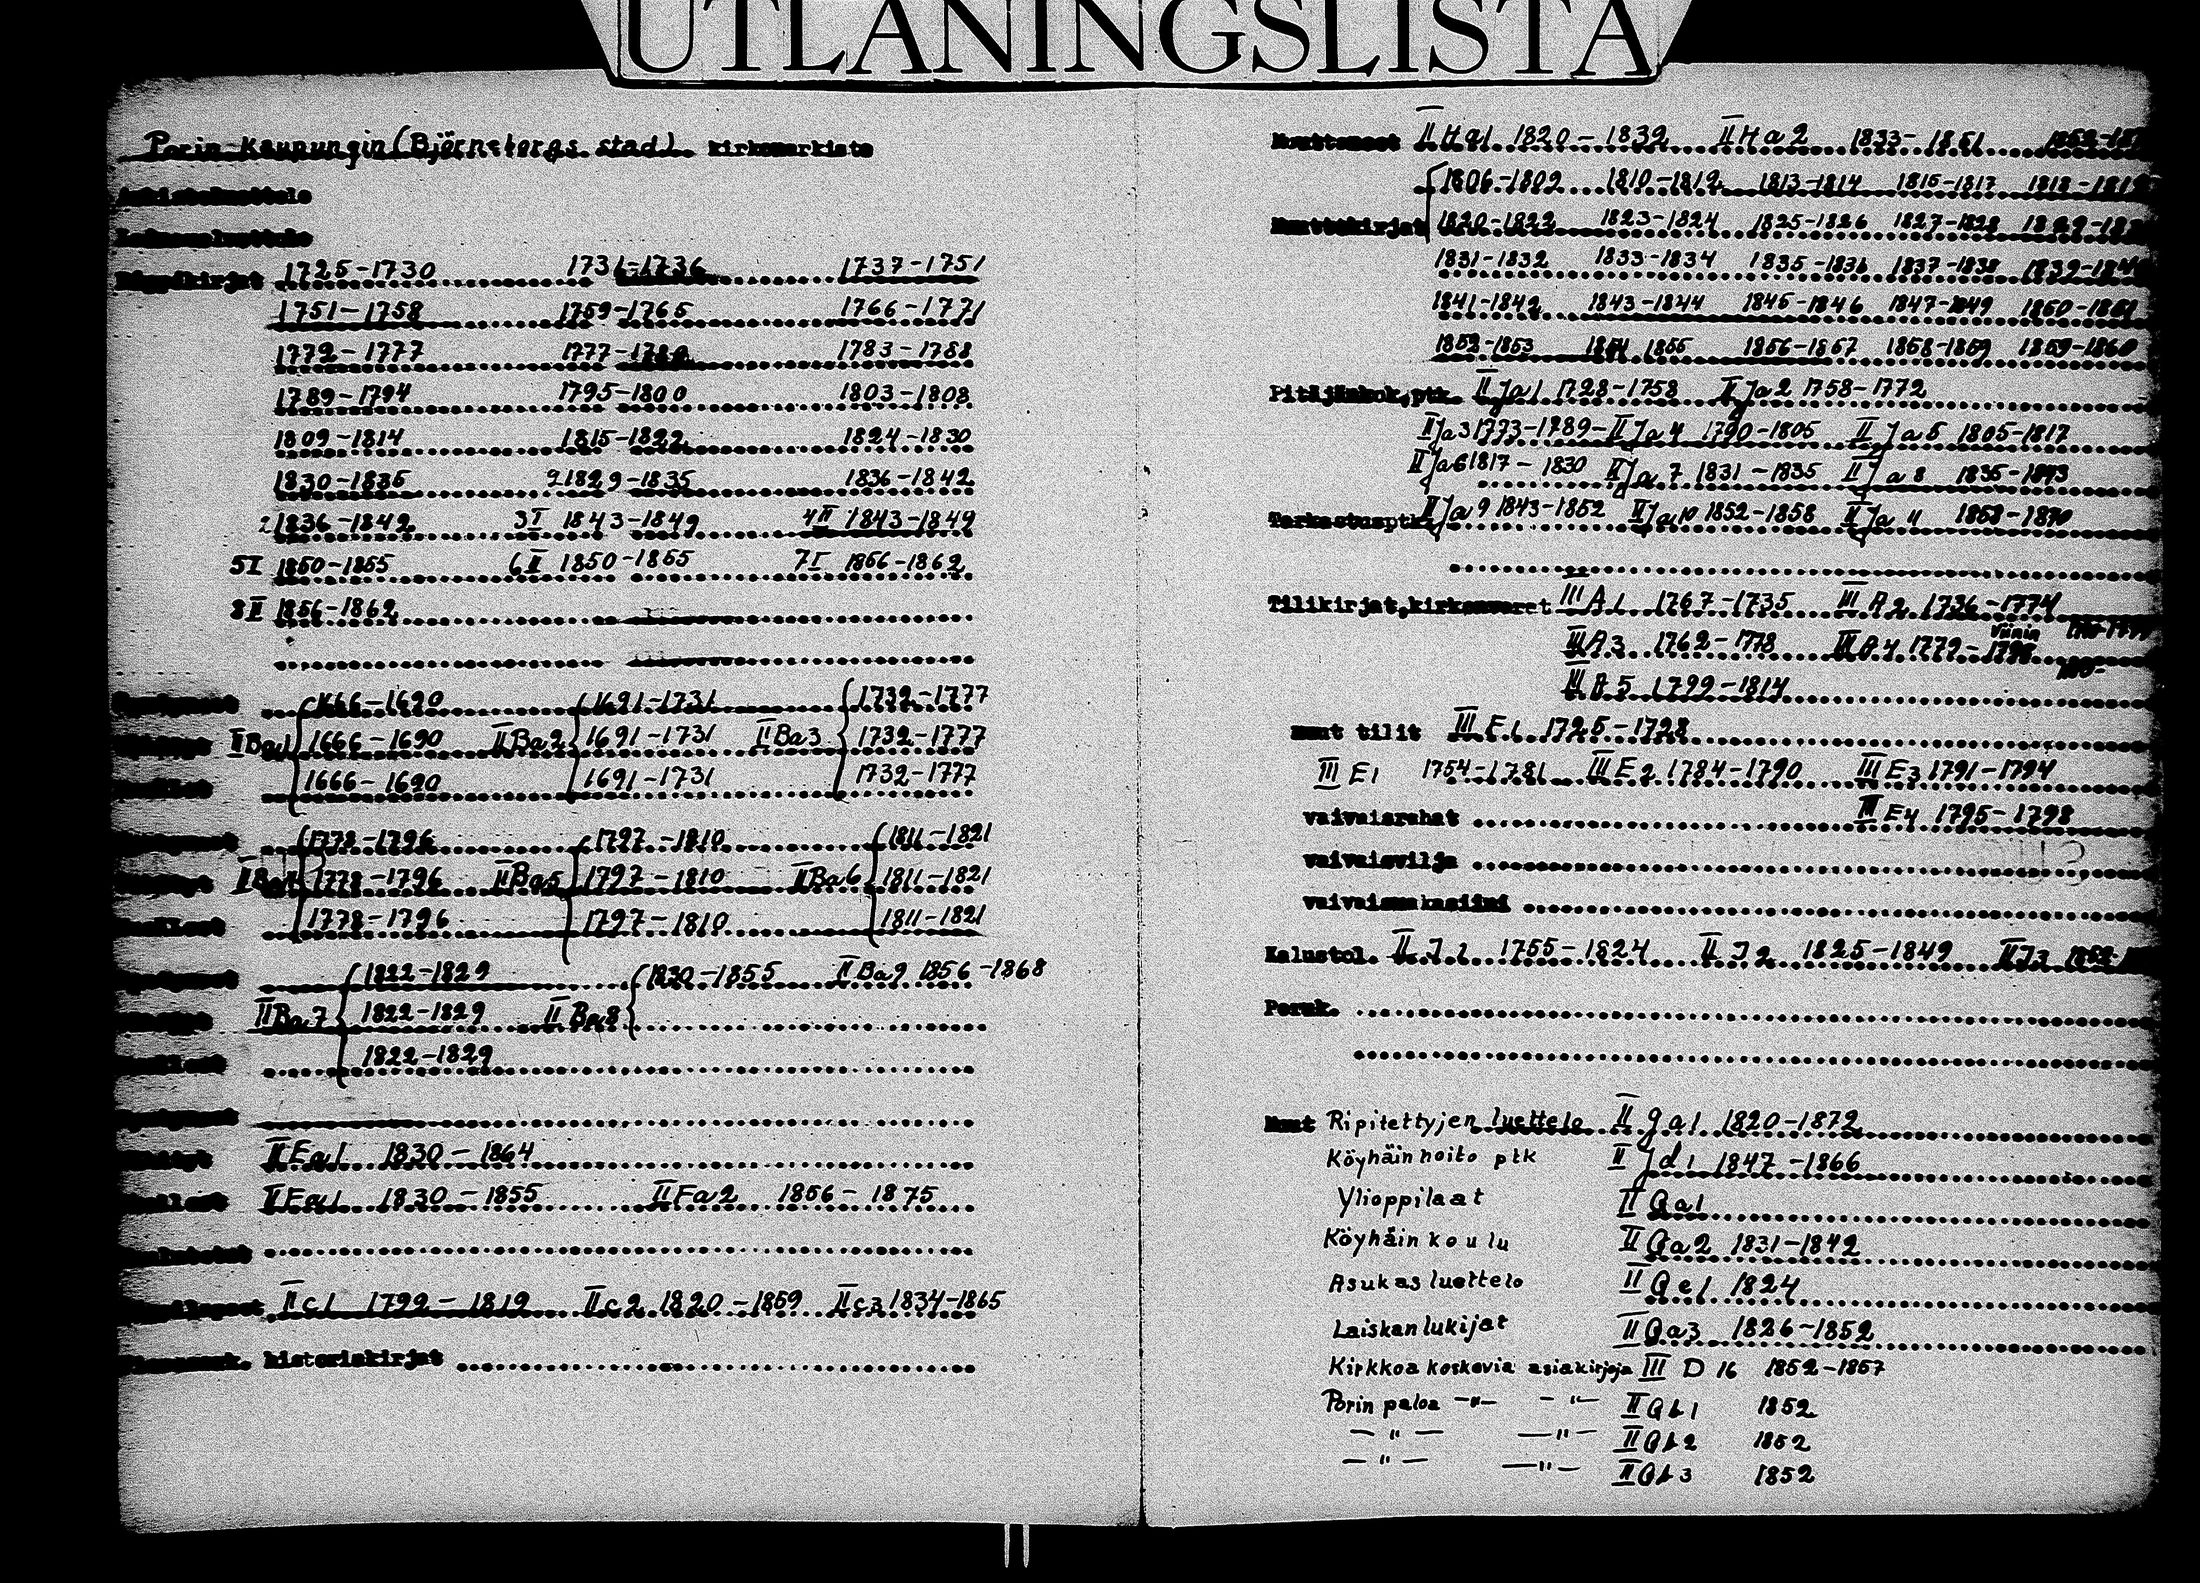 UTLÅNINGSLISTA
Porin kaupungin (Björneborgs stad) kirkonarkisto
1725-1730 1731-1736 1737-1751
1751-1758 1759-1765 1766-1771
1772-1777 1777-1780 1783-1788
1789-1794 1795-1800 1803-1808
1809-1814 1815-1822 1824-1830
1830-1835 2 1829-1835 1836-1842
2 1836-1842 3 I 1843-1849 4 II 1843-1849
5 I 1850-1855 6 II 1850-1855 7 I 1856-1862
8 II 1856-1862
1666-1690 1691-1731 1732-1777
II Ba1 1666-1690 II Ba2 1691-1731 II Ba3 1732-1777
1666-1690 1691-1731 1732-1777
1778-1796 1797-1810 1811-1821
II Ba4 1778-1796 II Ba5 1797-1810 II Ba6 1811-1821
1778-1796 1797-1810 1811-1821
1822-1829 1830-1855 II Ba9 1856-1868
II Ba7 1822-1829 II Ba8
1822-1829
II Ea1 1830-1864
II Fa1 1830-1855 II Fa2 1856-1875
II c1 1799-1819 II c2 1820-1859 II c3 1834-1865
historiakirjat
Muuttaneet II Ha1 1820-1832 II Ha2 1833-1851
1806-1809 1810-1812 1813-1814 1815-1817 1818-1819
Muuttokirjat 1820-1822 1823-1824 1825-1826 1827-1828 1829-
1831-1832 1833-1834 1835-1836 1837-1838 1839-1840
1841-1842 1843-1844 1845-1846 1847-1849 1850-1851
1852-1853 1854 1855 1856-1857 1858-1859 1859-1860
Pitäjänkok.ptk. II Ja1 1728-1758 II Ja2 1758-1772
II Ja3 1773-1789- II Ja4 1790-1805 II Ja5 1805-1817
II Ja6 1817-1830 II Ja7 1831-1835 II Ja8 1835-1843
Tarkastusptk. II Ja9 1843-1852 II Ja10 1852-1858 II Ja11 1858-1870
Tilikirjat,kirkonvarat III A1 1767-1735 III A2 1736-1774
III A3 1762-1778 III A4 1779-1798 Viinin
III A5 1799-1814
muut tilit III E1 1725-1728
III E1 1754-1781 III E2 1784-1790 III E3 1791-1794
vaivaisrahat III E4 1795-1798
vaivaisvilja
vaivaismakasiini
Kalustol. II J1 1755-1824 II J2 1825-1849 II J3
Peruk.
Muut Ripitettyjen luettelo II Ja1 1820-1872
Köyhäinhoito ptk II Jd1 1847-1866
Ylioppilaat II Ga1
Köyhäinkoulu II Ga2 1831-1842
Asukasluettelo II Ge1 1824
Laiskanlukijat II Ga3 1826-1852
Kirkkoa koskevia asiakirjoja III D 16 1852-1857
Porin paloa -"- -"- II Gb1 1852
-"- -"- II Gb2 1852
-"- -"- II Gb3 1852